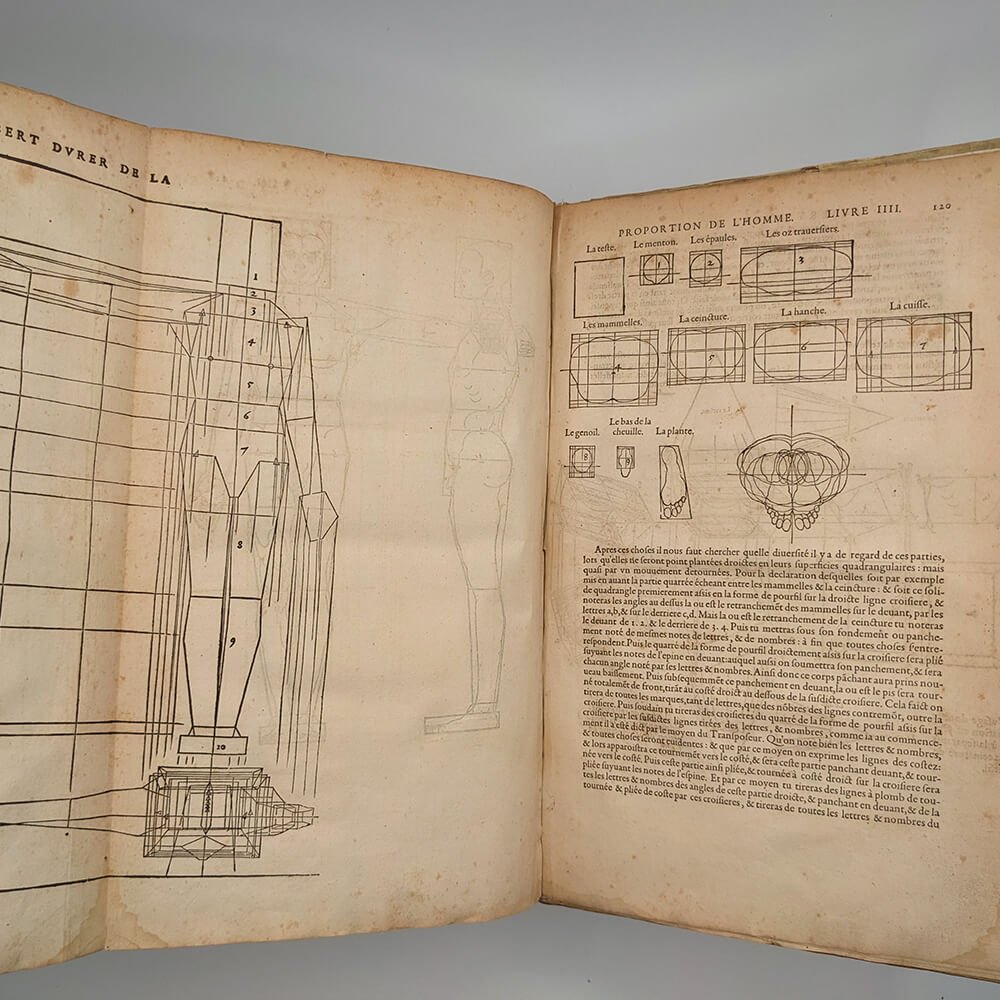 BERT DVRER DE LA
1
2
3
4
5
6
7
8
9
10
PROPORTION DE L'HOMME. LIVRE IIII. 120
La teste. Le menton. Les épaules. Les oz trauersiers.
1 2 3
Les mammelles. La ceincture. La hanche. La cuisse.
4 5 6 7
Le genoil. Le bas de la cheuille. La plante.
8 9
Apres ces choses il nous faut chercher quelle diuersité il y a de regard de ces parties,
lors qu'elles ne seront point plantées droictes en leurs superficies quadrangulaires: mais
quasi par vn mouuement detournées. Pour la declaration desquelles soit par exemple
mis en auant la partie quarrée écheant entre les mammelles & la ceincture: & soit ce soli-
de quadrangle premierement assis en la forme de pourfil sur la droicte ligne croisiere, &
noteras les angles au dessus la ou est le retranchemẽt des mammelles sur le deuant, par les
lettres a,b, & sur le derriere c,d. Mais la ou est le retranchement de la ceincture tu noteras
le deuant de 1. 2. & le derriere de 3. 4. Puis tu mettras sous son fondemẽt ou panche-
ment noté de mesmes notes de lettres, & de nombres: à fin que toutes choses s'entre-
respondent. Puis le quarré de la forme de pourfil droictement assis sur la croisiere sera plié
suyuant les notes de l'epine en deuant: auquel aussi on soumettra son panchement, & sera
chacun angle noté par ses lettres & nombres. Ainsi donc ce corps pãchant aura prins nou-
ueau baissement. Puis subsequemmẽt ce panchement en deuant, la ou est le pis sera tour-
né totalemẽt de front, tirãt au costé droict au dessous de la susdicte croisiere. Cela faict on
tirera de toutes les marques, tant de lettres, que des nõbres des lignes contremõt, outre la
croisiere. Puis soudain tu tireras des croisieres du quarré de la forme de pourfil assis sur la
croisiere par les susdictes lignes tirées des lettres, & nombres, comme ia au commence-
ment il a esté dict par le moyen du Transposeur. Qu'on note bien les lettres & nombres,
& toutes choses seront euidentes: & que par ce moyen on exprime les lignes des costez:
& lors apparoistra ce tournemẽt vers le costé, & sera ceste partie panchant deuant, & tour-
née vers le costé. Puis ceste partie ainsi pliée, & tournée à costé droict sur la croisiere sera
pliée suyuant les notes de l'espine. Et par ce moyen tu tireras des lignes à plomb de tou-
tes les lettres & nombres des angles de ceste partie droicte, & panchant en deuant, & de la
tournée & pliée de coste par ces croisieres, & tireras de toutes les lettres & nombres du